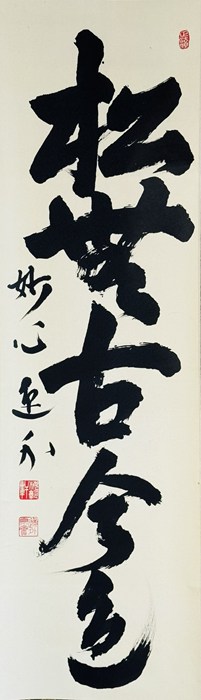 松無古今色
妙心